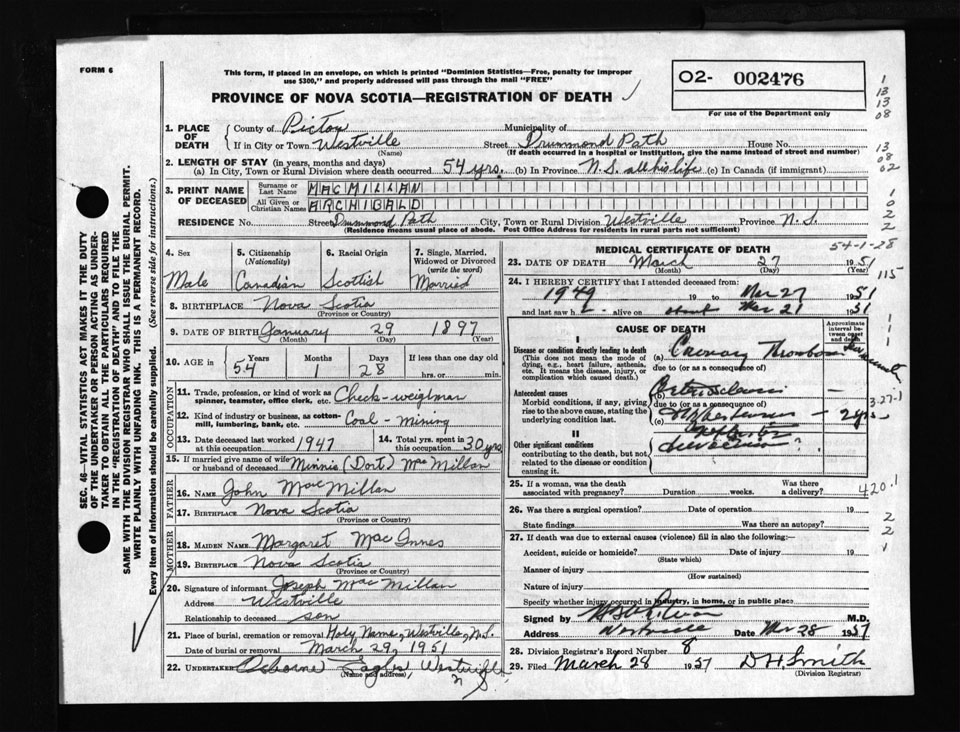 FORM 6
This form, if placed in an envelope, on which is printed "Dominion Statistics—Free, penalty for improper
use $300," and properly addressed will pass through the mail "FREE"
O2- 002476
PROVINCE OF NOVA SCOTIA—REGISTRATION OF DEATH
For use of the Department only
1. PLACE OF DEATH County of Pictou Municipality of
If in City or Town Westville Street Drummond Path House No.
(Name) (If death occurred in a hospital or institution, give the name instead of street and number)
2. LENGTH OF STAY (in years, months and days)
(a) In City, Town or Rural Division where death occurred 54 yrs. (b) In Province N.S. all his life (c) In Canada (if immigrant)
3. PRINT NAME OF DECEASED Surname or Last Name MACMILLAN
All Given or Christian Names ARCHIBALD
RESIDENCE No. Street Drummond Path City, Town or Rural Division Westville Province N.S.
(Residence means usual place of abode. Post Office Address for residents in rural parts not sufficient)
4. Sex 5. Citizenship (Nationality) 6. Racial Origin 7. Single, Married, Widowed or Divorced (write the word)
Male Canadian Scottish Married
8. BIRTHPLACE Nova Scotia
(Province or Country)
9. DATE OF BIRTH January 29 1897
(Month) (Day) (Year)
10. AGE in Years Months Days If less than one day
54 1 28 hrs. or min.
OCCUPATION
11. Trade, profession, or kind of work as spinner, teamster, office clerk, etc. Check-weighman
12. Kind of industry or business, as cotton-mill, lumbering, bank, etc. Coal-mining
13. Date deceased last worked at this occupation 1947 14. Total yrs. spent in this occupation 30 yrs
15. If married give name of wife or husband of deceased Minnie (Dort) MacMillan
FATHER
16. NAME John MacMillan
17. BIRTHPLACE Nova Scotia
(Province or Country)
MOTHER
18. MAIDEN NAME Margaret MacInnes
19. BIRTHPLACE Nova Scotia
(Province or Country)
20. Signature of informant Joseph MacMillan
Address Westville
Relationship to deceased son
21. Place of burial, cremation or removal Holy Name, Westville, N.S.
Date of burial or removal March 29, 1951
22. UNDERTAKER Osborne Eagles Westville
(Name and address) N S
MEDICAL CERTIFICATE OF DEATH
54-1-28
23. DATE OF DEATH March 27 1951
(Month) (Day) (Year)
24. I HEREBY CERTIFY that I attended deceased from:
1949 19 to Mar 27 1951
and last saw h alive on about Mar 21 1951
CAUSE OF DEATH
Approximate interval between onset and death
I
Disease or condition directly leading to death
(This does not mean the mode of dying, e.g., heart failure, asthenia, etc. It means the disease, injury, or complication which caused death.)
(a)
due to (or as a consequence of)
Antecedent causes
Morbid conditions, if any, giving rise to the above cause, stating the underlying condition last.
(b)
due to (or as a consequence of)
(c) 2 yrs
II
Other significant conditions
contributing to the death, but not related to the disease or condition causing it.
25. If a woman, was the death associated with pregnancy? Duration weeks. Was there a delivery?
26. Was there a surgical operation? Date of operation 19
State findings Was there an autopsy?
27. If death was due to external causes (violence) fill in also the following:—
Accident, suicide or homicide? Date of injury 19
(State which)
Manner of injury
(How sustained)
Nature of injury
Specify whether injury occurred in industry, in home, or in public place
Signed by M.D.
Address Westville Date Mar 28 1951
28. Division Registrar's Record Number 8
29. Filed March 28 1951 D H Smith
(Division Registrar)
SEC. 46—VITAL STATISTICS ACT MAKES IT THE DUTY
OF THE UNDERTAKER OR PERSON ACTING AS UNDER-
TAKER TO OBTAIN ALL THE PARTICULARS REQUIRED
IN THE "REGISTRATION OF DEATH" AND TO FILE THE
SAME WITH THE DIVISION REGISTRAR WHO SHALL ISSUE THE BURIAL PERMIT.
WRITE PLAINLY WITH UNFADING INK. THIS IS A PERMANENT RECORD.
Every item of information should be carefully supplied. (See reverse side for instructions.)
1
13
13
08
13
08
02
115
3-27-1
420.1
2
2
1